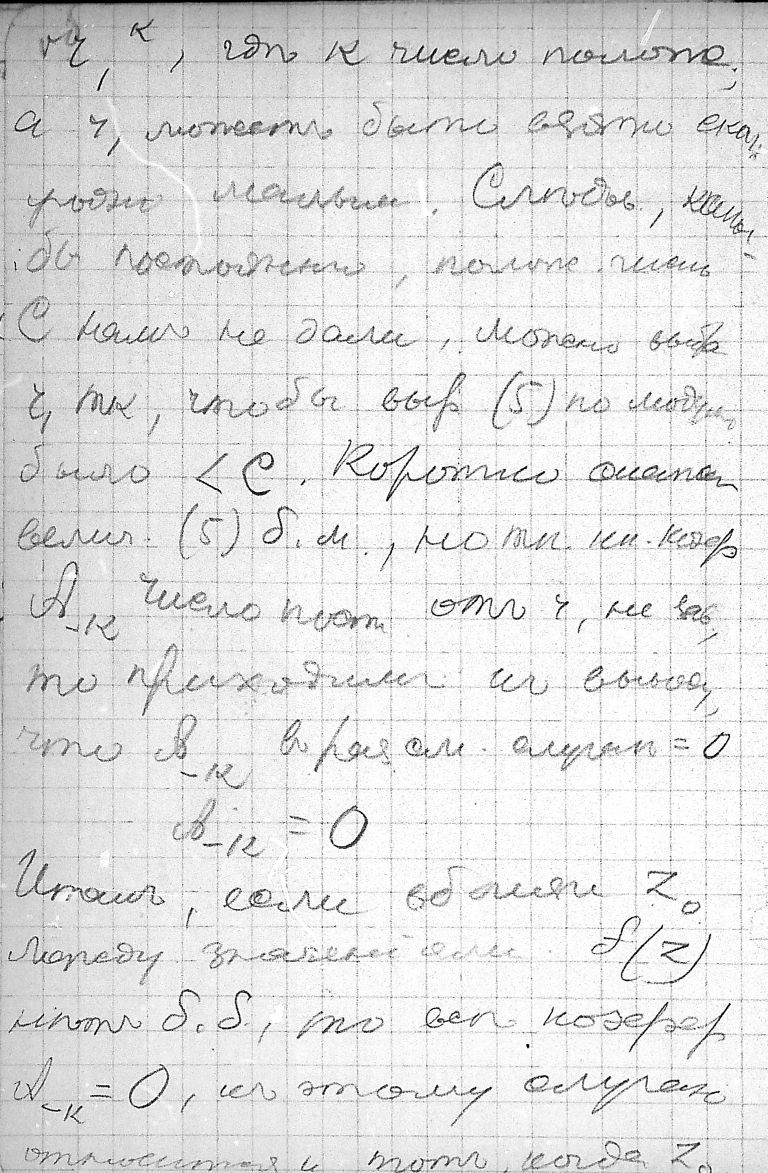 r₁ᴷ, гдѣ к число полож;
а r₁ можетъ быть взято ска
угодно малым. Слѣдов.,
бы постоянно, полож. число
C намъ не дали, можно выбр
r₁ тк, чтобы выр (5) по модулю
было < C. Коротко
велич. (5) б.м., но тк. коэф
A₋ₖ число пост отъ r₁ не зав,
то приходимъ къ вывод,
что A₋ₖ въ разсм. случаѣ = 0
A₋ₖ = 0
Итакъ, если вблизи Z₀
между значеніями f(z)
нѣтъ б.б., то всѣ коэффф
A₋ₖ = 0, къ этому случаю
относится и тотъ, когда Z₀